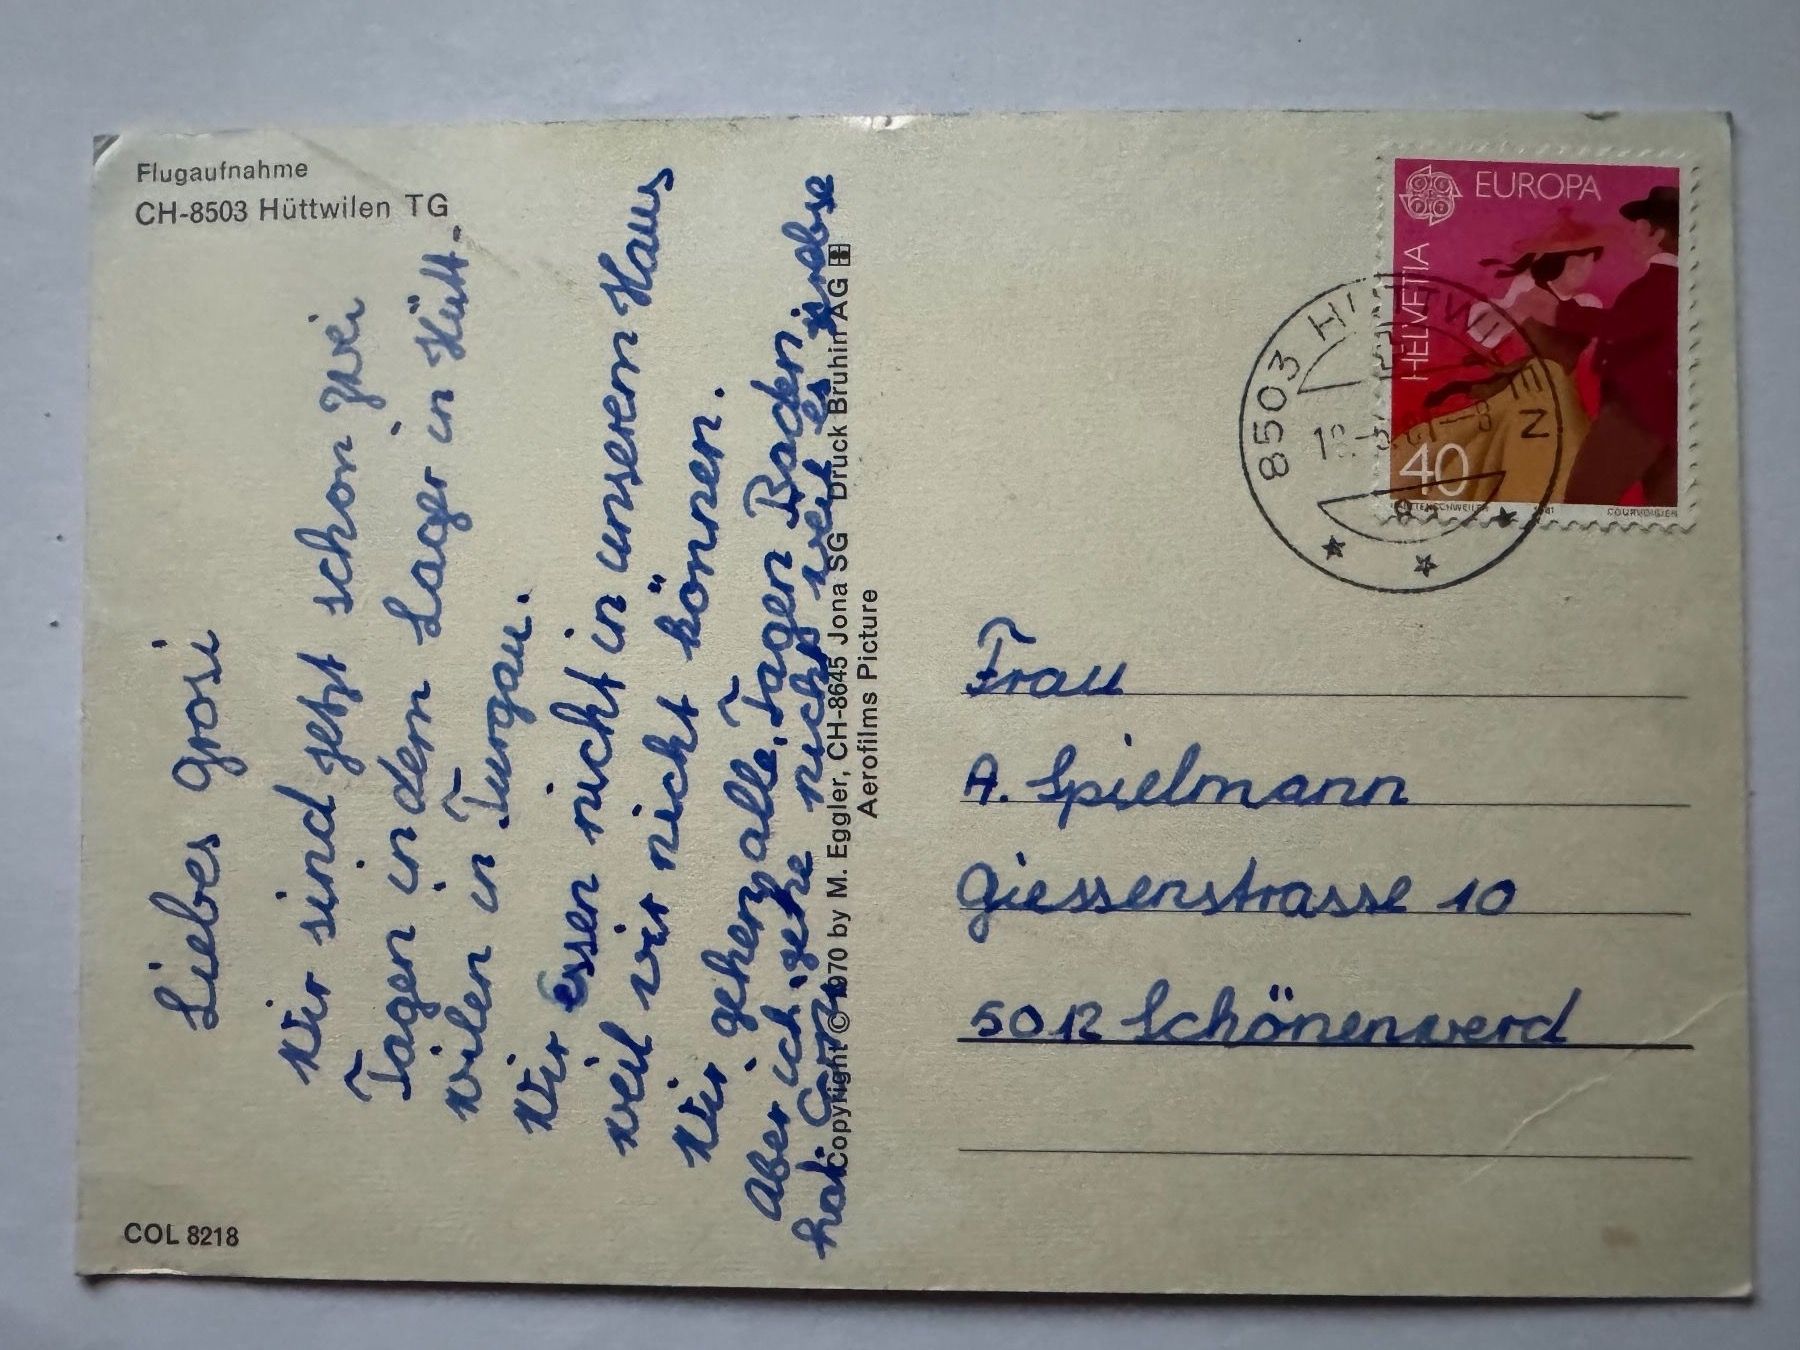 Flugaufnahme
CH-8503 Hüttwilen TG
Liebes Grosi
Wir sind jetzt schon zwei
Tagen in dem Laager in Hütt-
wilen in Turgau.
Wir essen nicht in unserem Haus
weil wir nicht können.
Wir gehen alle Tagen Baden
Aber ich gehe nicht weil es
hat
Copyright © 1970 by M. Eggler, CH-8645 Jona SG Druck Bruhin AG
Aerofilms Picture
COL 8218
EUROPA
HELVETIA
40
COURVOISIER
8503 HÜTTWILEN
Frau
A. Spielmann
Giessenstrasse 10
5012 Schönenwerd